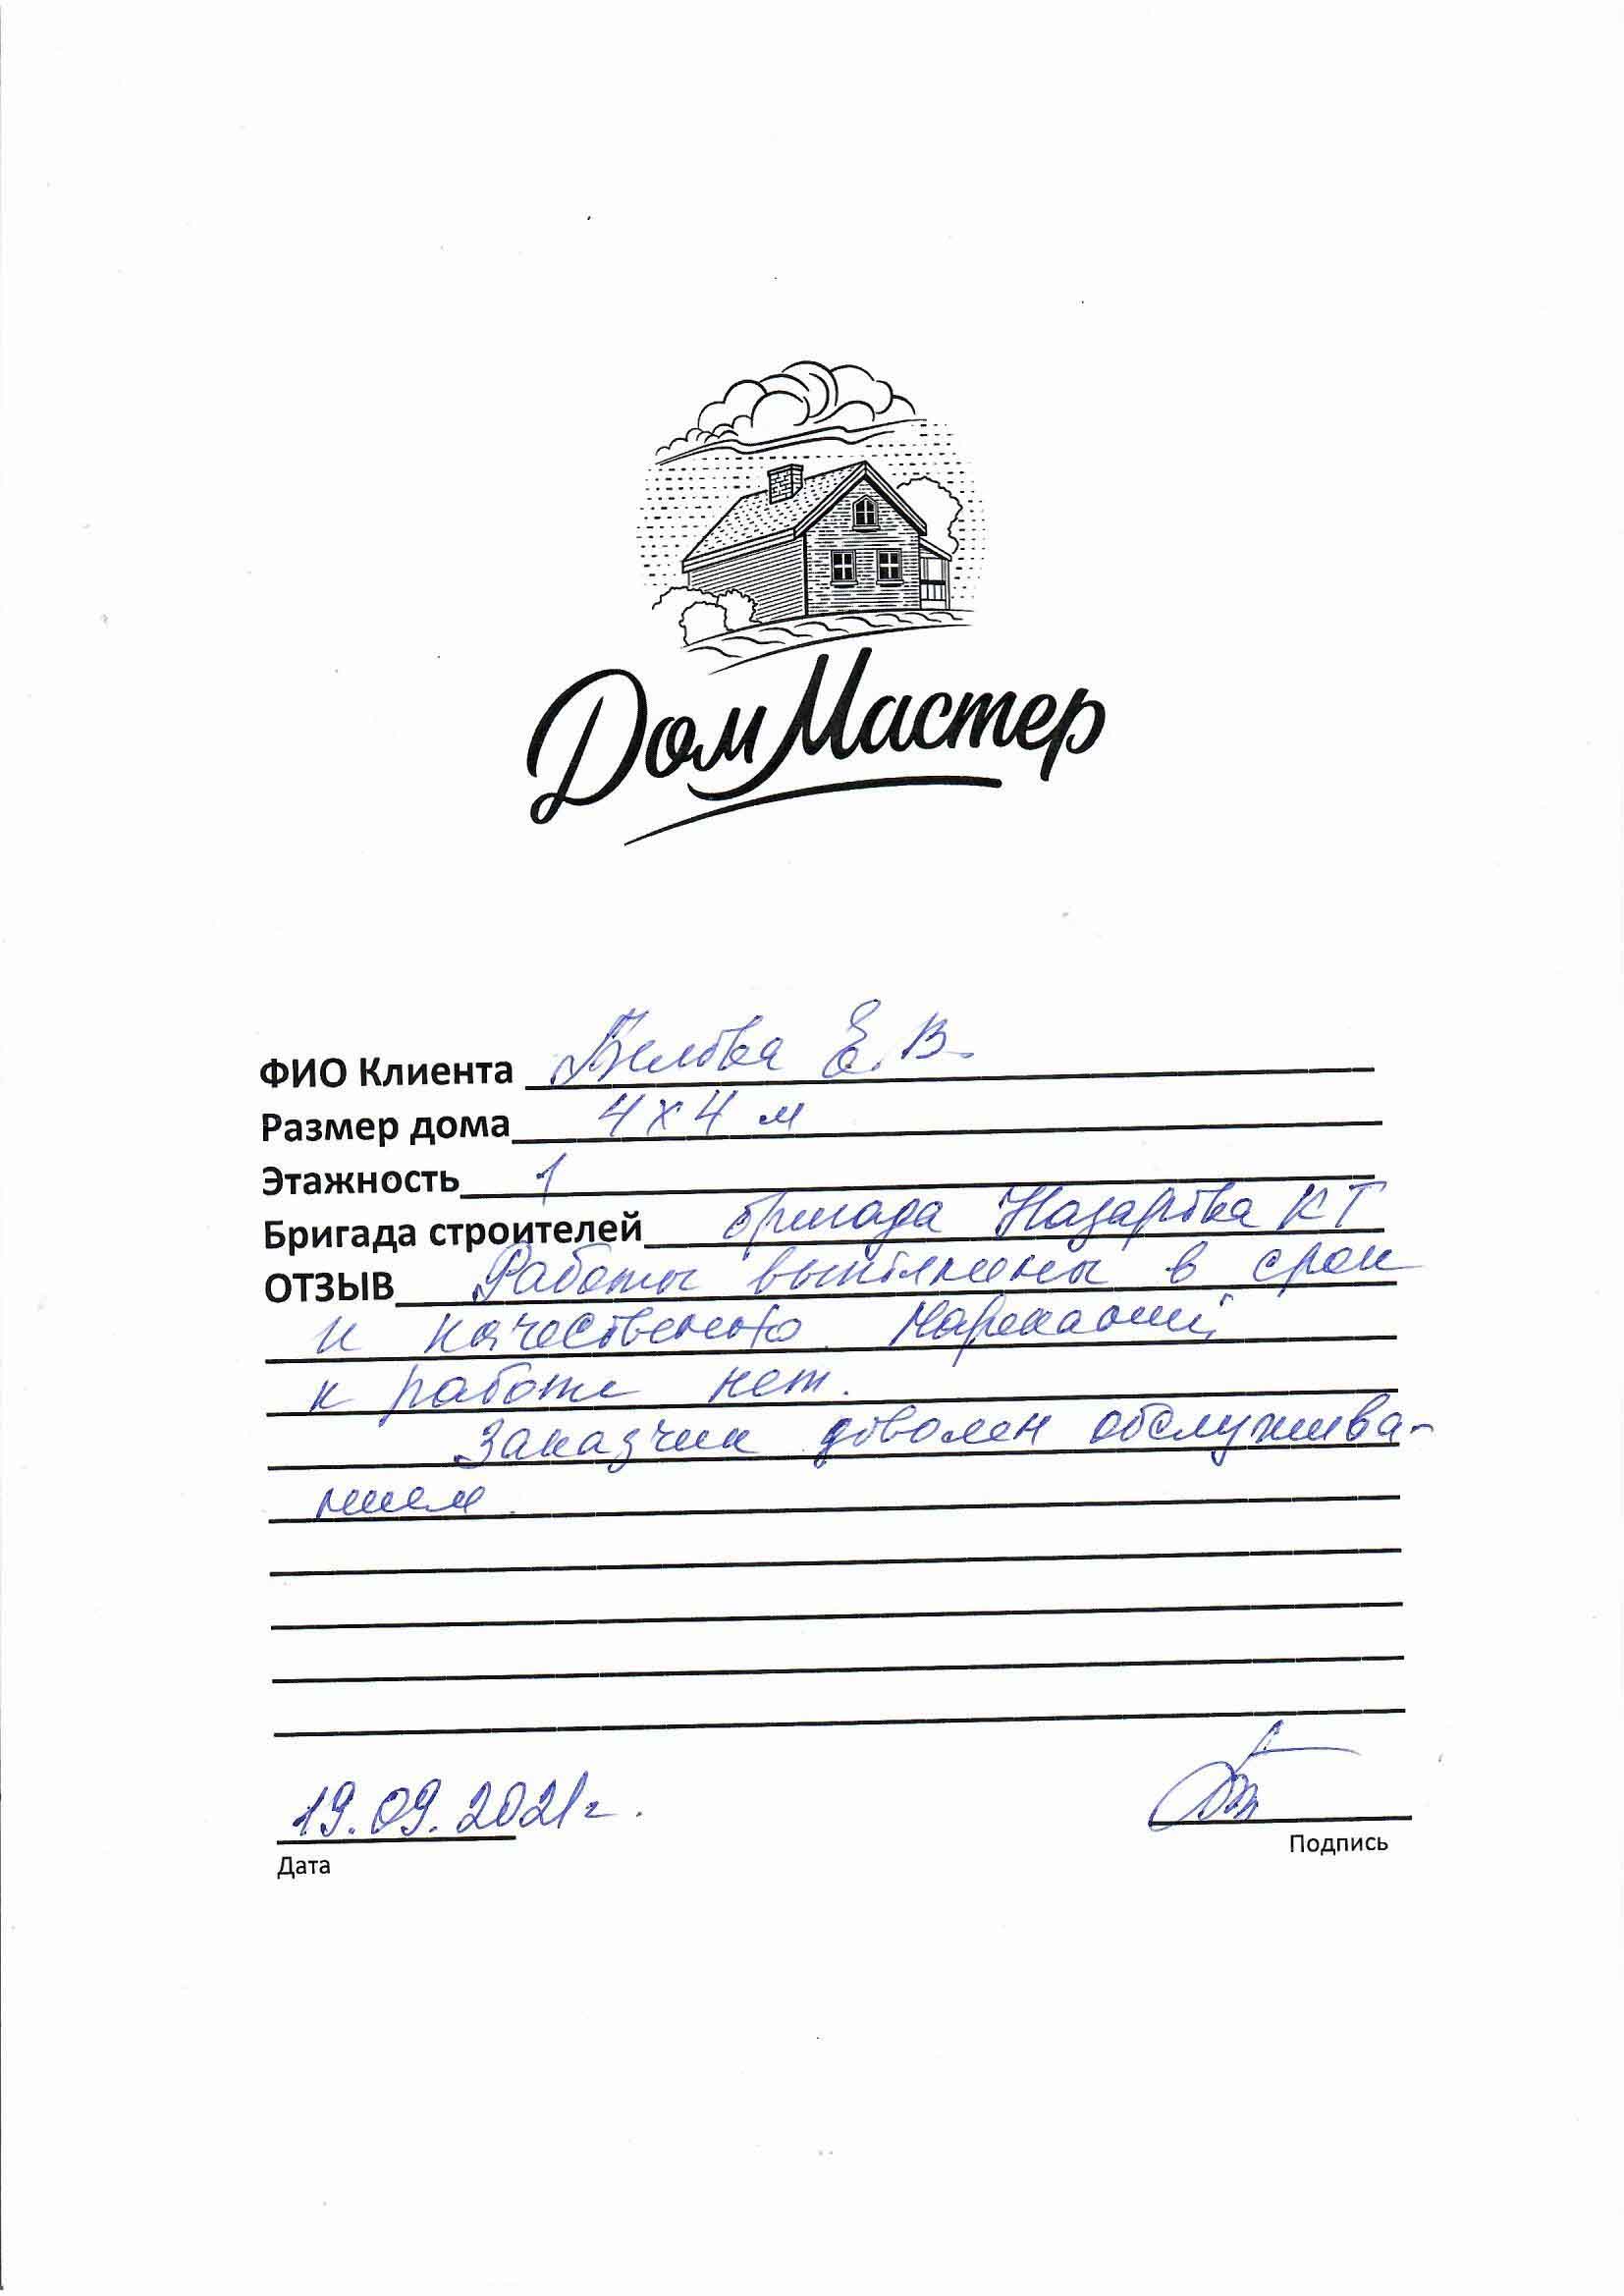 ДомМастер
ФИО Клиента Белова Е. В.
Размер дома 4 х 4 м
Этажность 1
Бригада строителей бригада Назарова КТ
ОТЗЫВ Работы выполнены в срок
и качественно. Нареканий
к работе нет.
Заказчик доволен обслужива-
нием.
19.09.2021г.
Дата
Подпись